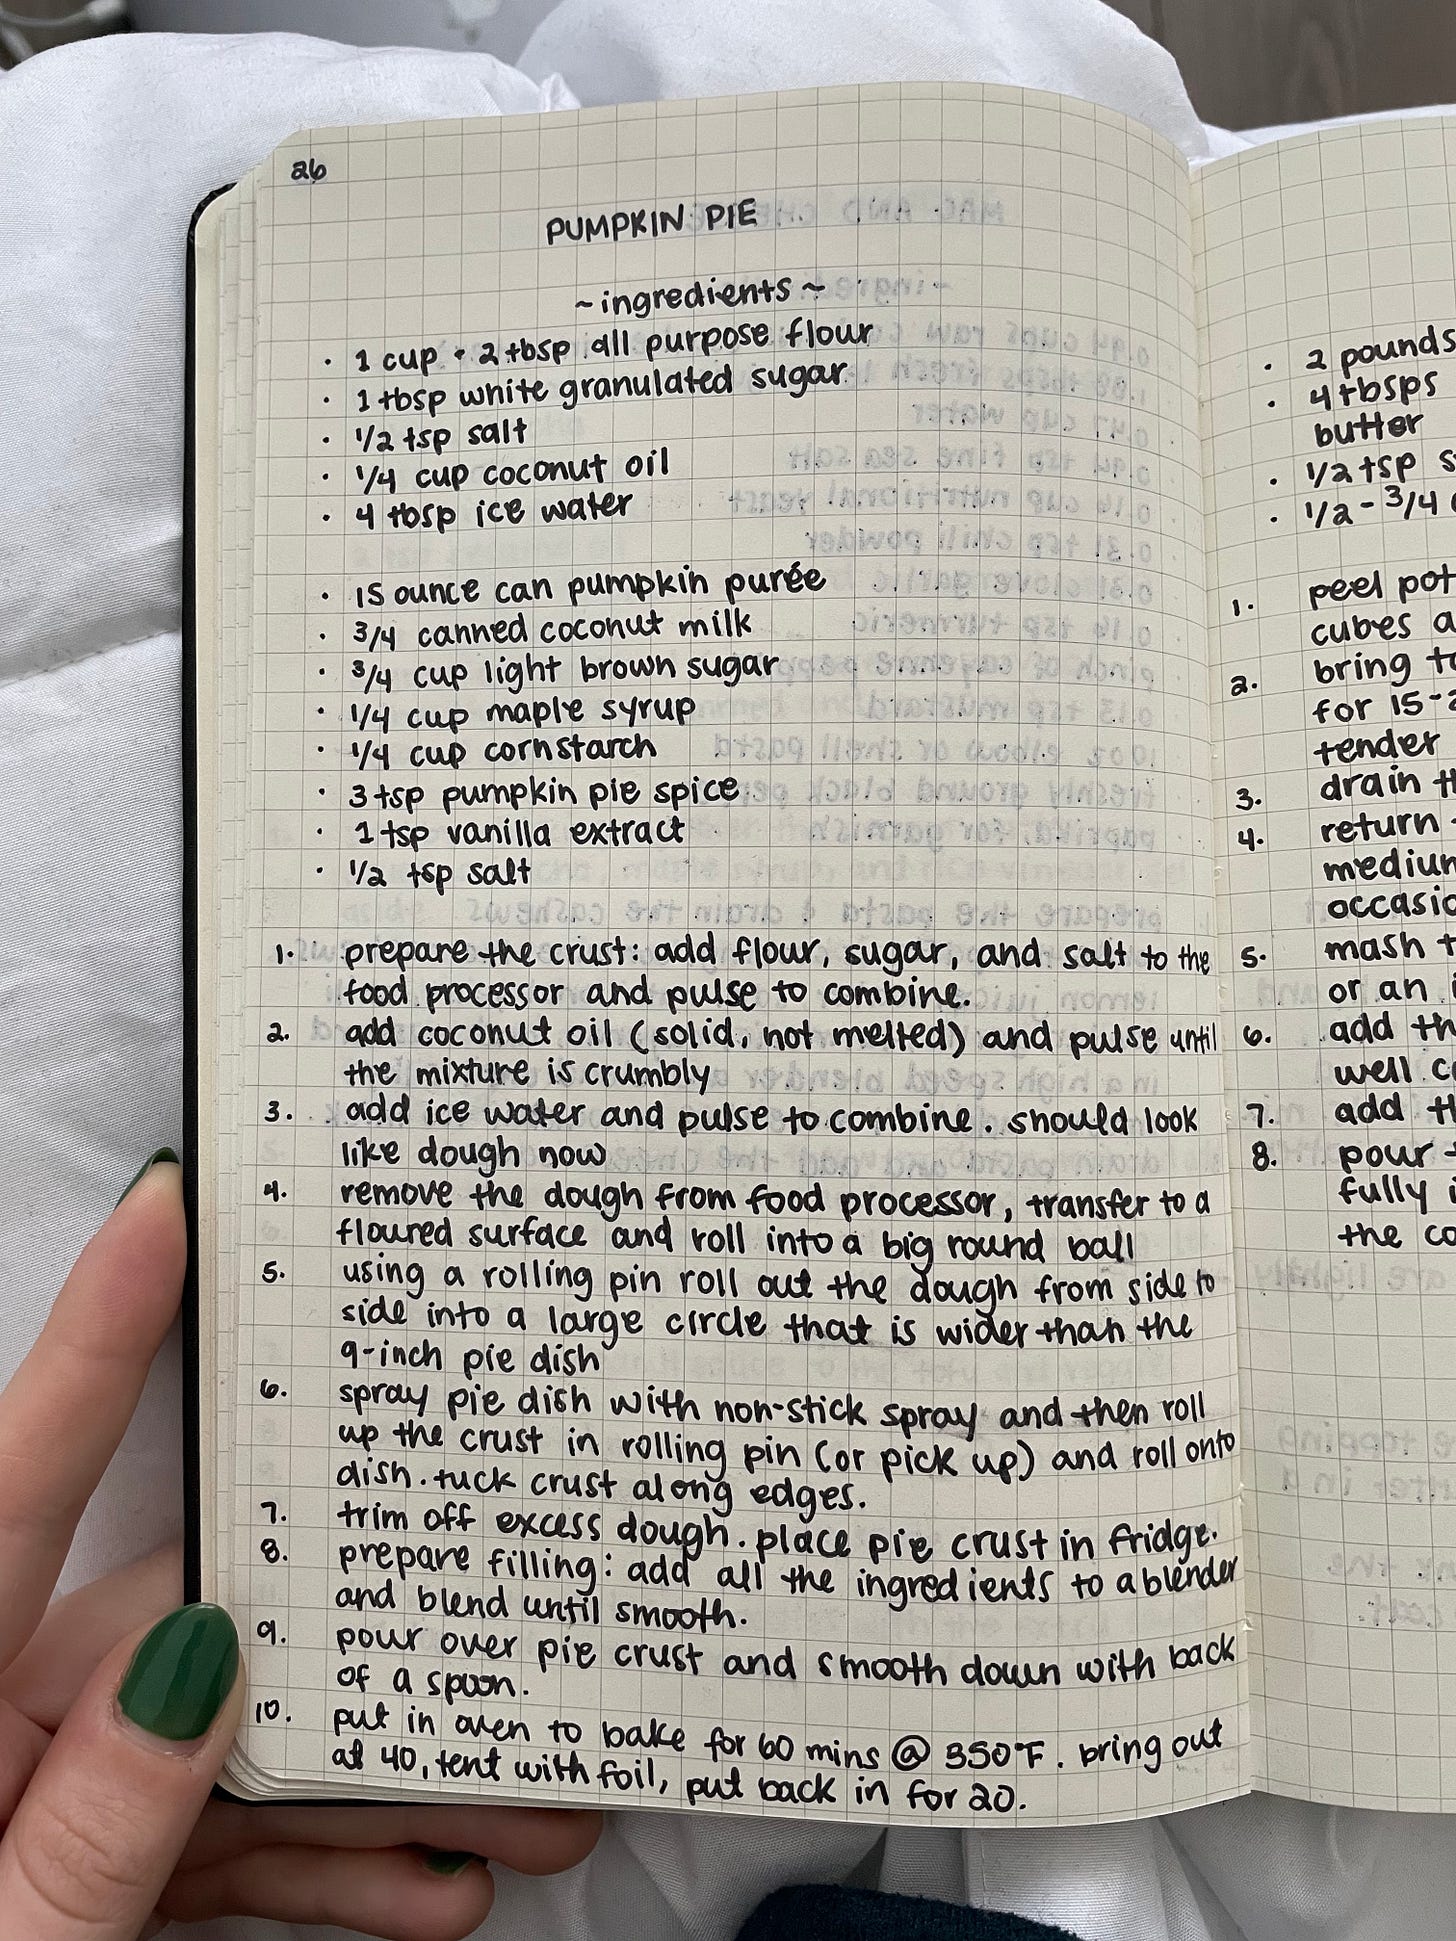 26
PUMPKIN PIE
~ingredients~
· 1 cup + 2 tbsp all purpose flour
· 1 tbsp white granulated sugar
· 1/2 tsp salt
· 1/4 cup coconut oil
· 4 tbsp ice water
· 15 ounce can pumpkin purée
· 3/4 canned coconut milk
· 3/4 cup light brown sugar
· 1/4 cup maple syrup
· 1/4 cup cornstarch
· 3 tsp pumpkin pie spice
· 1 tsp vanilla extract
· 1/2 tsp salt
1. prepare the crust: add flour, sugar, and salt to the
food processor and pulse to combine.
2. add coconut oil (solid, not melted) and pulse until
the mixture is crumbly
3. add ice water and pulse to combine. should look
like dough now
4. remove the dough from food processor, transfer to a
floured surface and roll into a big round ball
5. using a rolling pin roll out the dough from side to
side into a large circle that is wider than the
9-inch pie dish
6. spray pie dish with non-stick spray and then roll
up the crust in rolling pin (or pick up) and roll onto
dish. tuck crust along edges.
7. trim off excess dough. place pie crust in fridge.
8. prepare filling: add all the ingredients to a blender
and blend until smooth.
9. pour over pie crust and smooth down with back
of a spoon.
10. put in oven to bake for 60 mins @ 350°F. bring out
at 40, tent with foil, put back in for 20.
· 2 pounds
· 4 tbsps
butter
· 1/2 tsp
· 1/2 - 3/4
1. peel
cubes
2. bring
for 15-2
tender
3. drain
4. return
medium
5. mash
or an
6. add
well
7. add
8. pour
fully
the